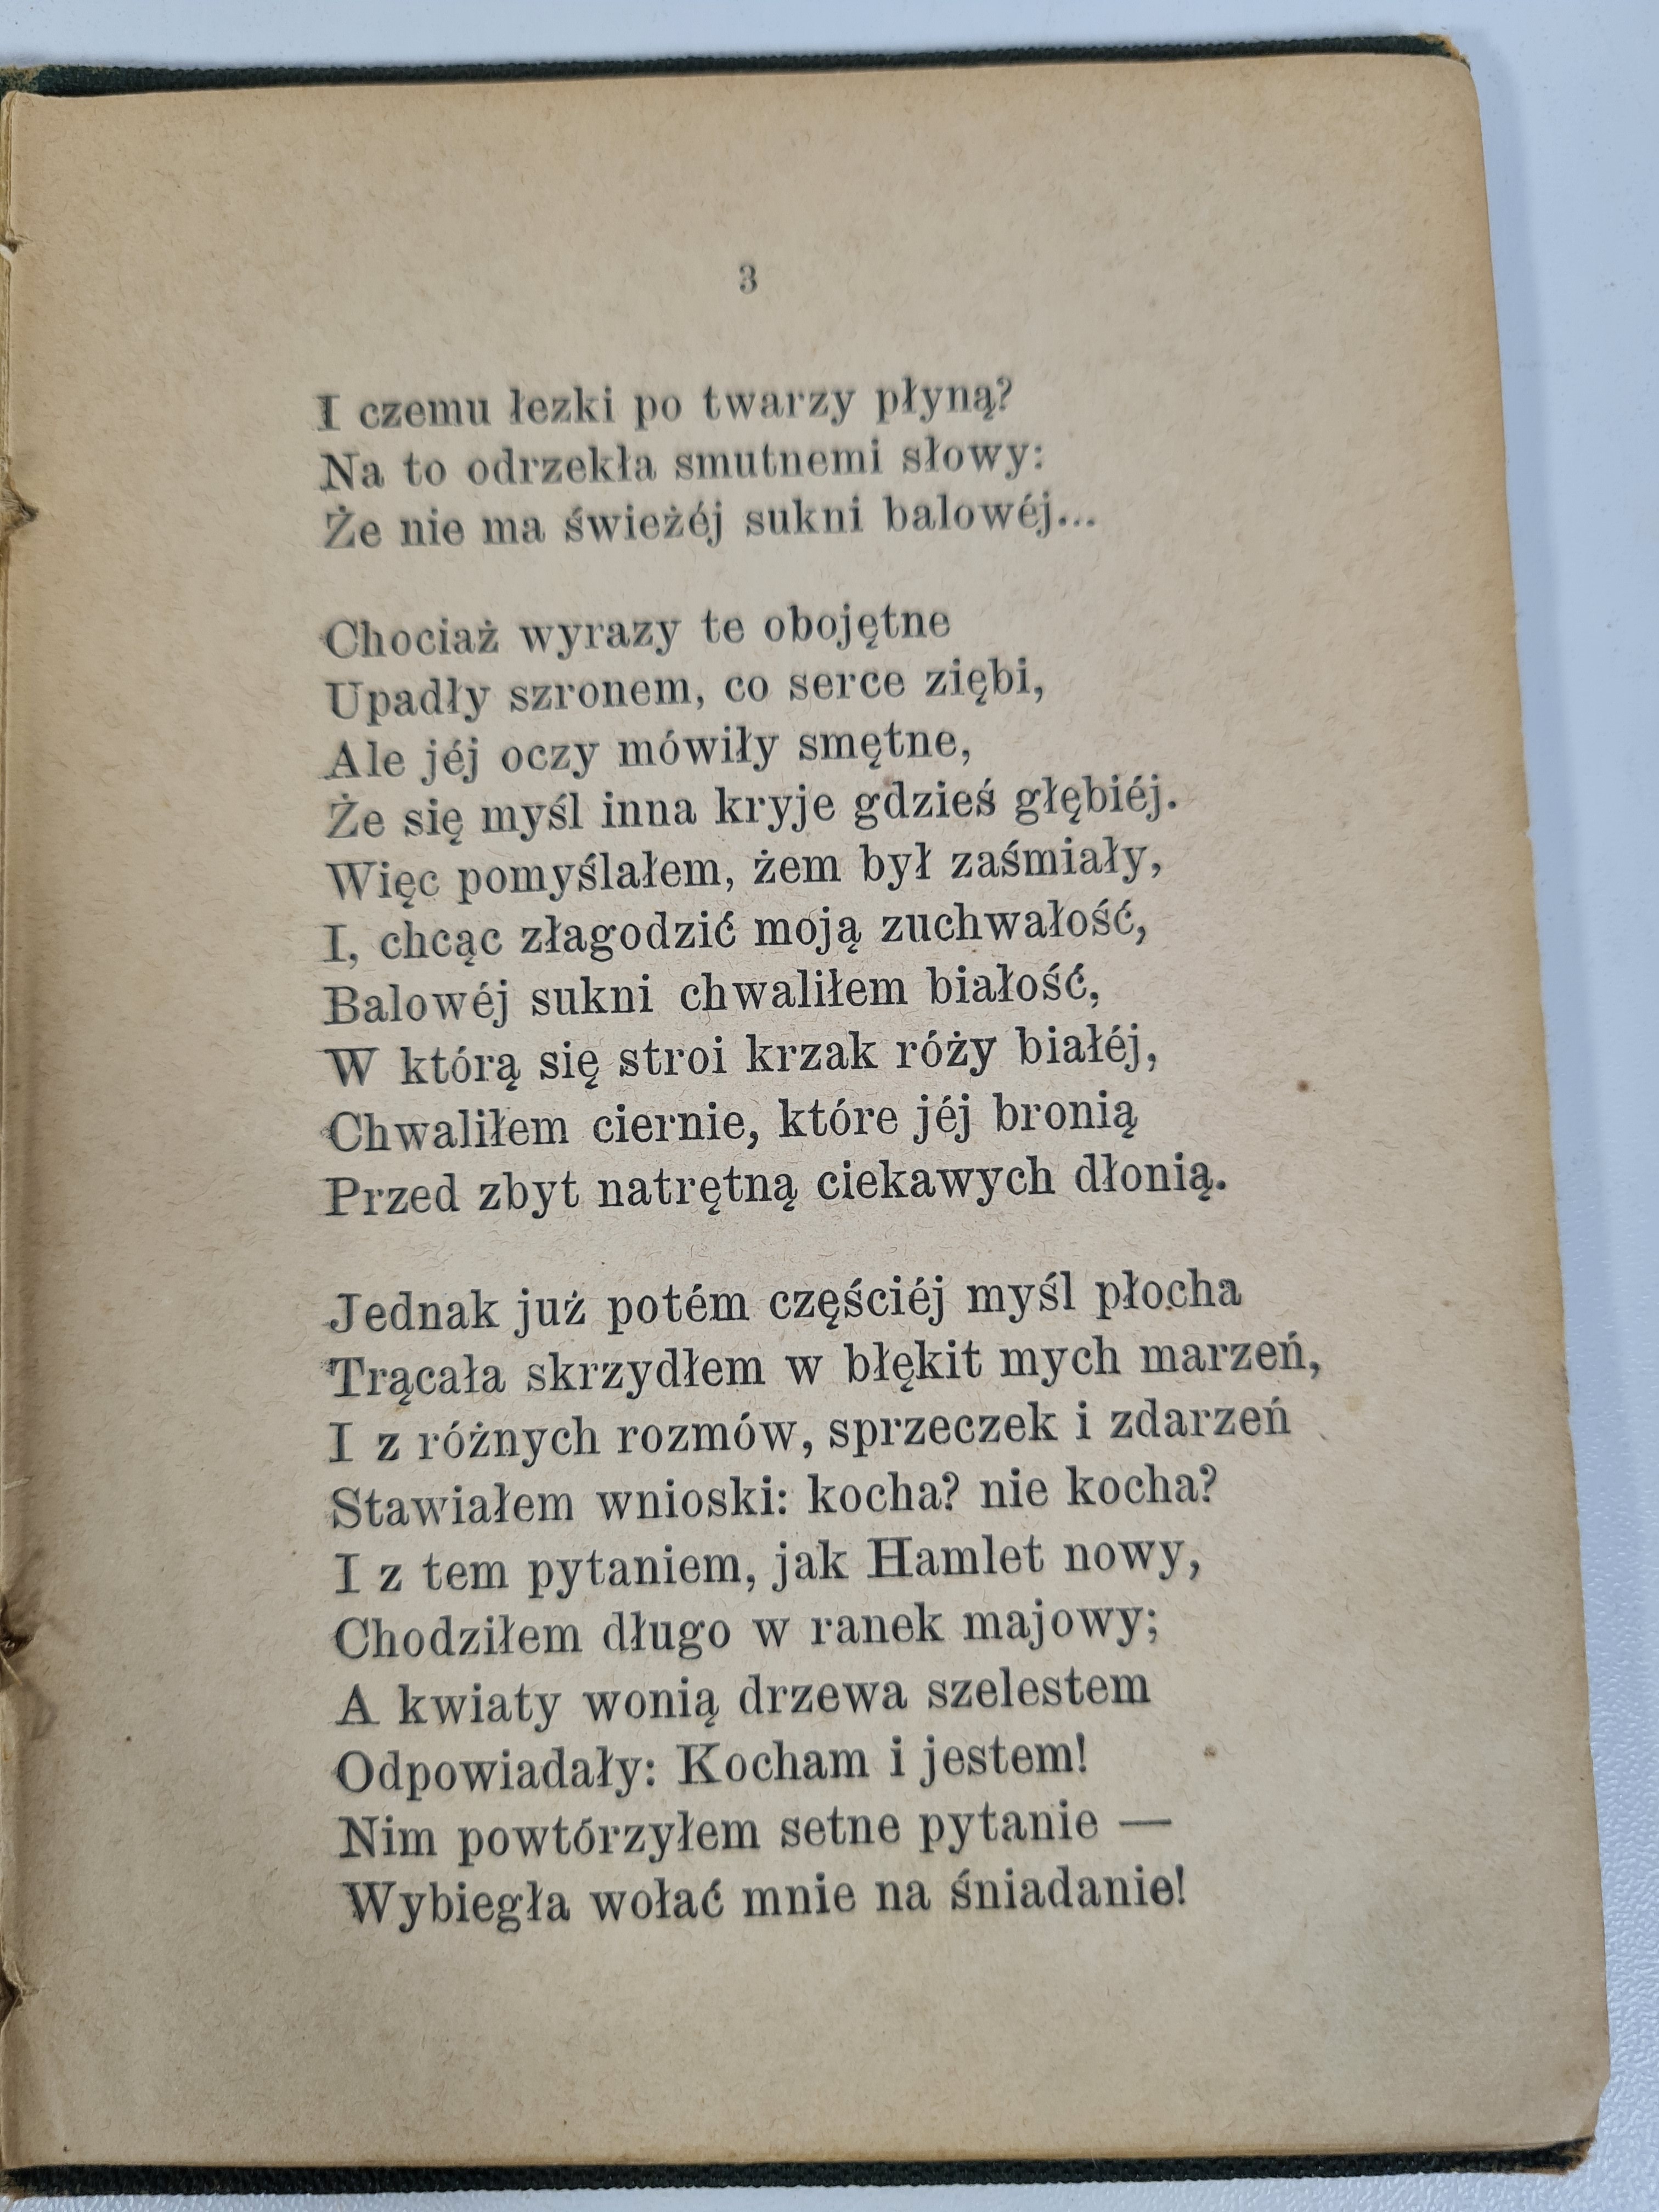 3
I czemu łezki po twarzy płyną?
Na to odrzekła smutnemi słowy:
Że nie ma świeżéj sukni balowéj...
Chociaż wyrazy te obojętne
Upadły szronem, co serce ziębi,
Ale jéj oczy mówiły smętne,
Że się myśl inna kryje gdzieś głębiéj.
Więc pomyślałem, żem był zaśmiały,
I, chcąc złagodzić moją zuchwałość,
Balowéj sukni chwaliłem białość,
W którą się stroi krzak róży białéj,
Chwaliłem ciernie, które jéj bronią
Przed zbyt natrętną ciekawych dłonią.
Jednak już potém częściéj myśl płocha
Trącała skrzydłem w błękit mych marzeń,
I z różnych rozmów, sprzeczek i zdarzeń
Stawiałem wnioski: kocha? nie kocha?
I z tem pytaniem, jak Hamlet nowy,
Chodziłem długo w ranek majowy;
A kwiaty wonią drzewa szelestem
Odpowiadały: Kocham i jestem!
Nim powtórzyłem setne pytanie —
Wybiegła wołać mnie na śniadanie!